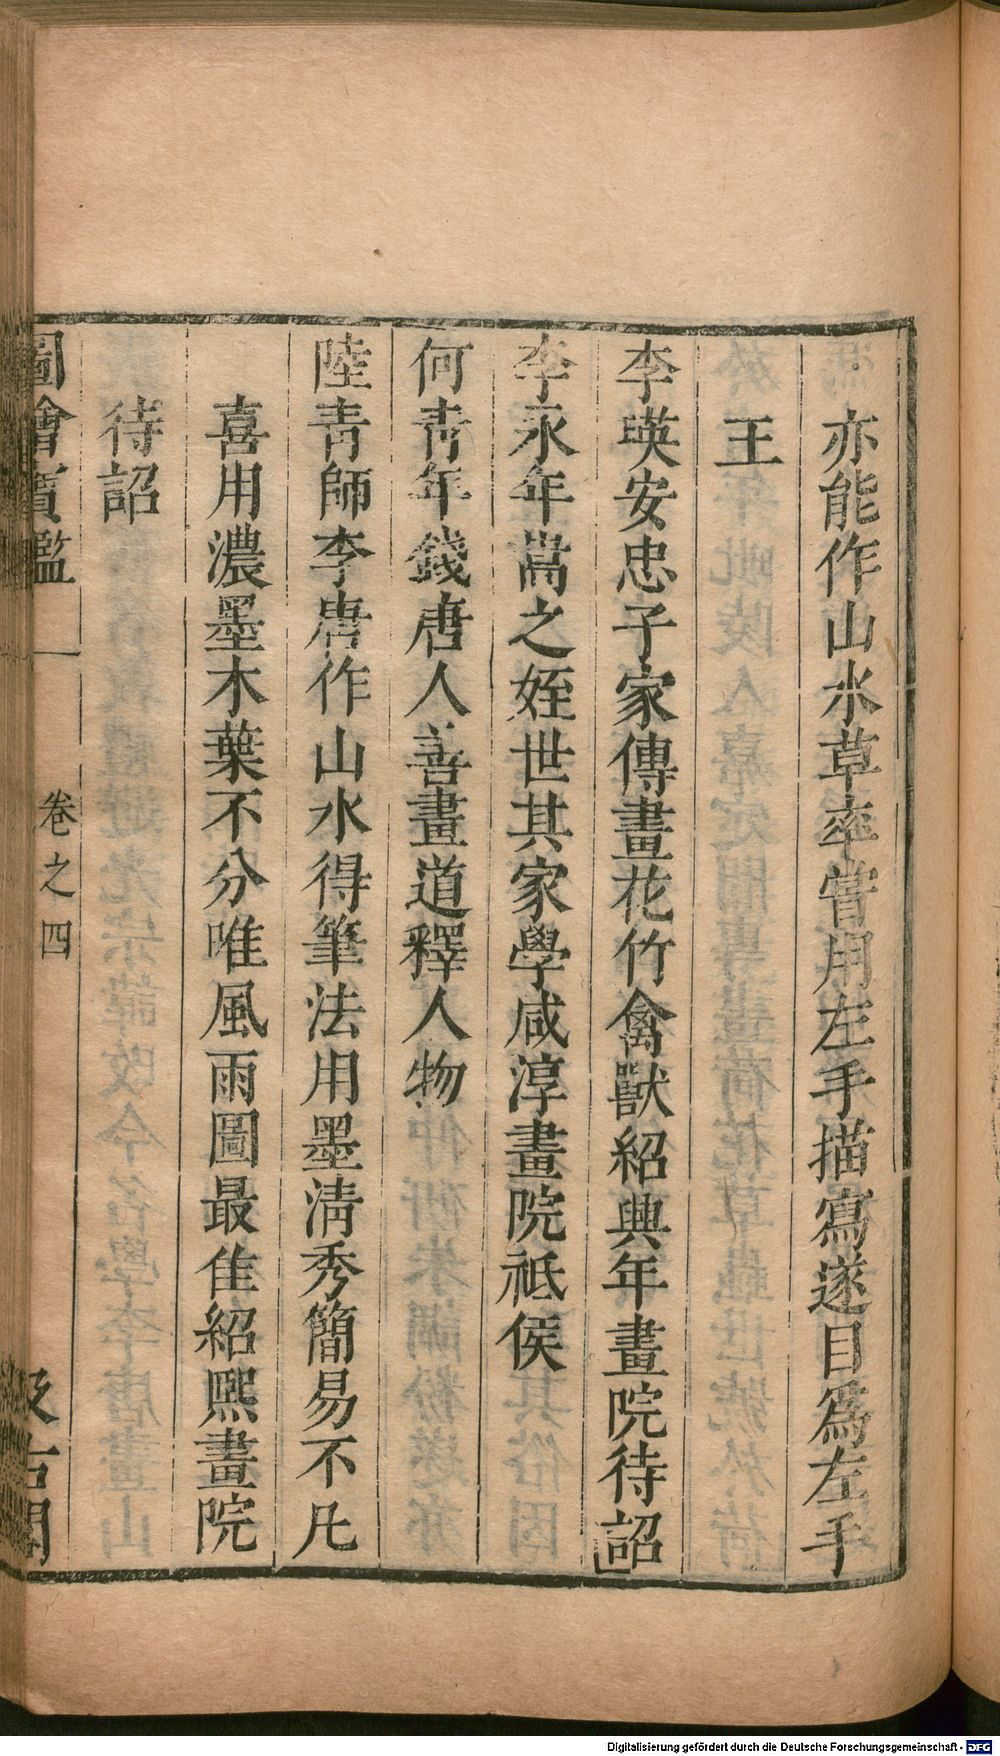 亦能作山水草率嘗用左手描寫遂目爲左手
王
李瑛安忠子家傳畫花竹禽獸紹興年畫院待詔
李永年嵩之姪世其家學咸淳畫院祗侯
何青年錢唐人善畫道釋人物
陸青師李唐作山水得筆法用墨清秀簡易不凡
喜用濃墨木葉不分唯風雨圖最佳紹熙畫院
待詔
圖繪寶鑑 卷之四 汲古閣
Digitalisierung gefördert durch die Deutsche Forschungsgemeinschaft - DFG